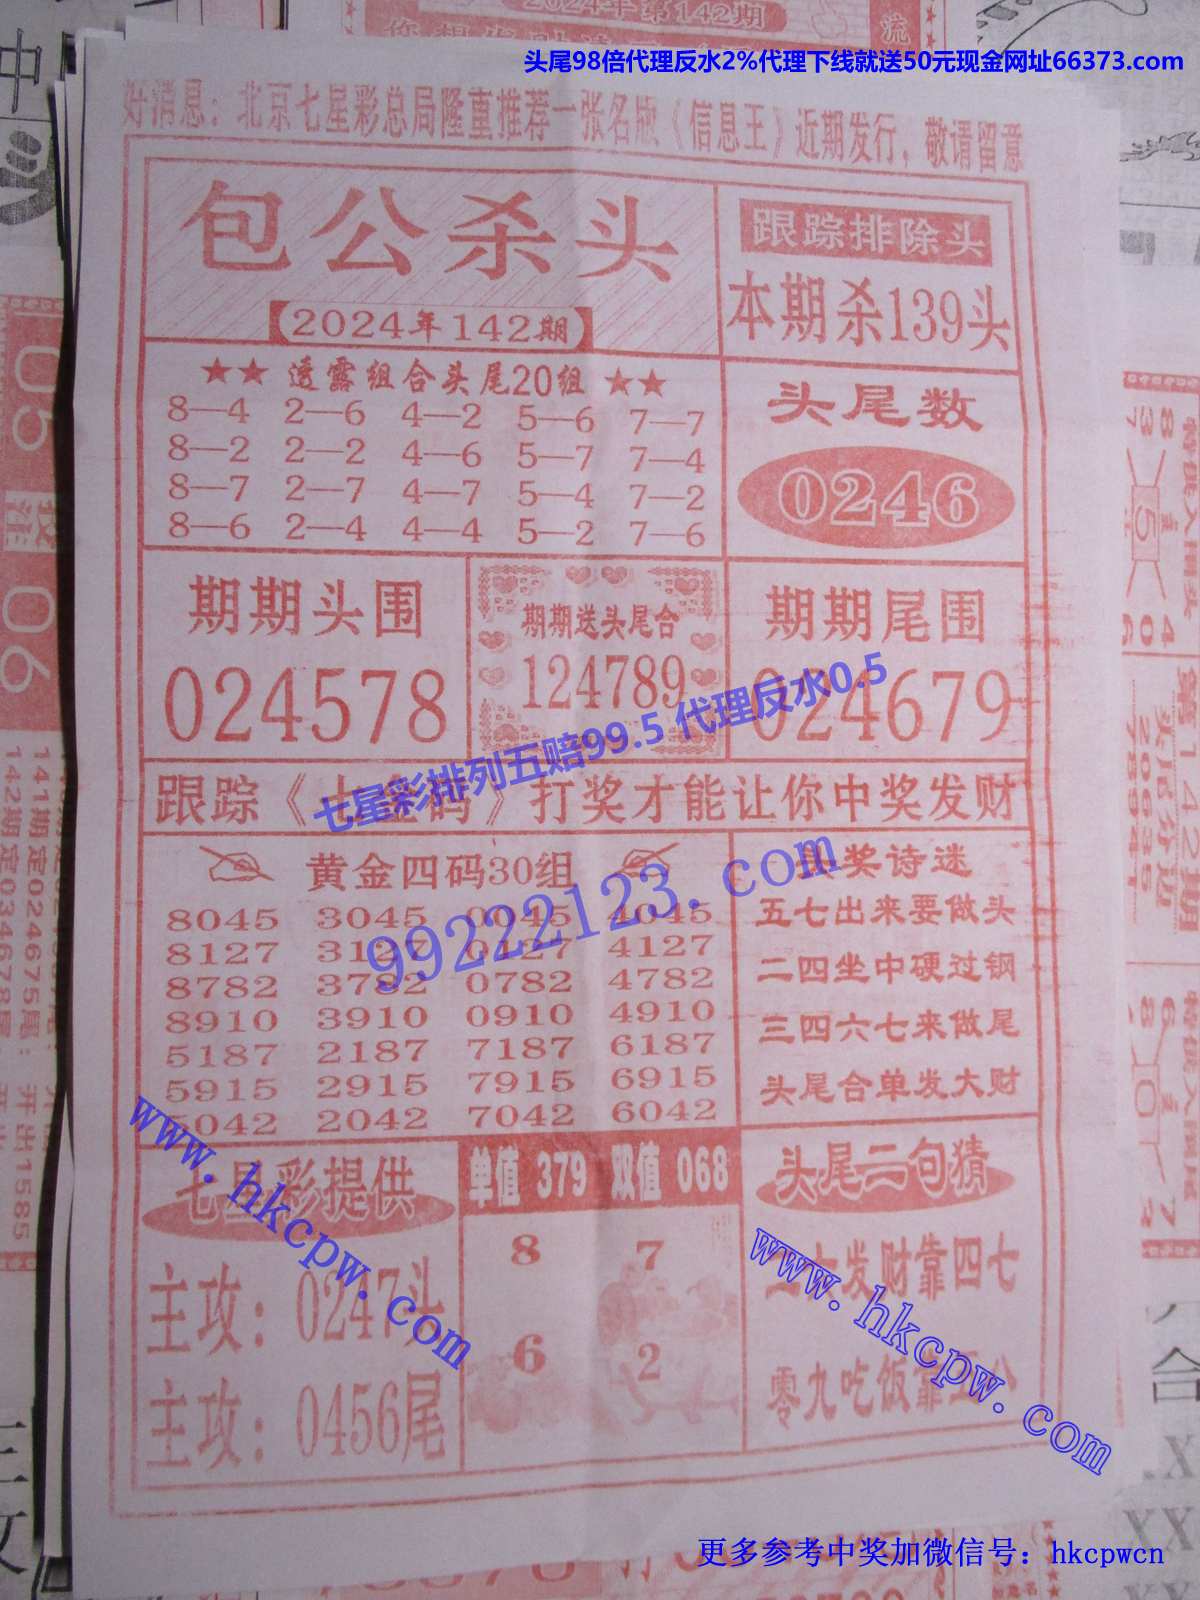 头尾98倍代理反水2%代理下线就送50元现金网址66373.com
好消息：北京七星彩总局隆重推荐一张名版《信息王》近期发行，敬请留意
包公杀头
【2024年142期】
跟踪排除头
本期杀139头
★★ 透露组合头尾20组 ★★
8—4 2—6 4—2 5—6 7—7
8—2 2—2 4—6 5—7 7—4
8—7 2—7 4—7 5—4 7—2
8—6 2—4 4—4 5—2 7—6
头尾数
0246
期期头围
024578
期期送头尾合
124789
期期尾围
024679
七星彩排列五赔99.5 代理反水0.5
跟踪《 码》打奖才能让你中奖发财
黄金四码30组
8045 3045 0045 4045
8127 3127 0127 4127
8782 3782 0782 4782
8910 3910 0910 4910
5187 2187 7187 6187
5915 2915 7915 6915
5042 2042 7042 6042
99222123.com
奖诗迷
五七出来要做头
二四坐中硬过钢
三四六七来做尾
头尾合单发大财
七星彩提供
主攻：0247头
主攻：0456尾
www.hkcpw.com
单值 379 双值 068
8 7
6 2
头尾二句猜
发财靠四七
零九吃饭靠
www.hkcpw.com
更多参考中奖加微信号：hkcpwcn
2024年第142期
05
06
141期定024675尾：开出1585
142期定034678尾
第142期